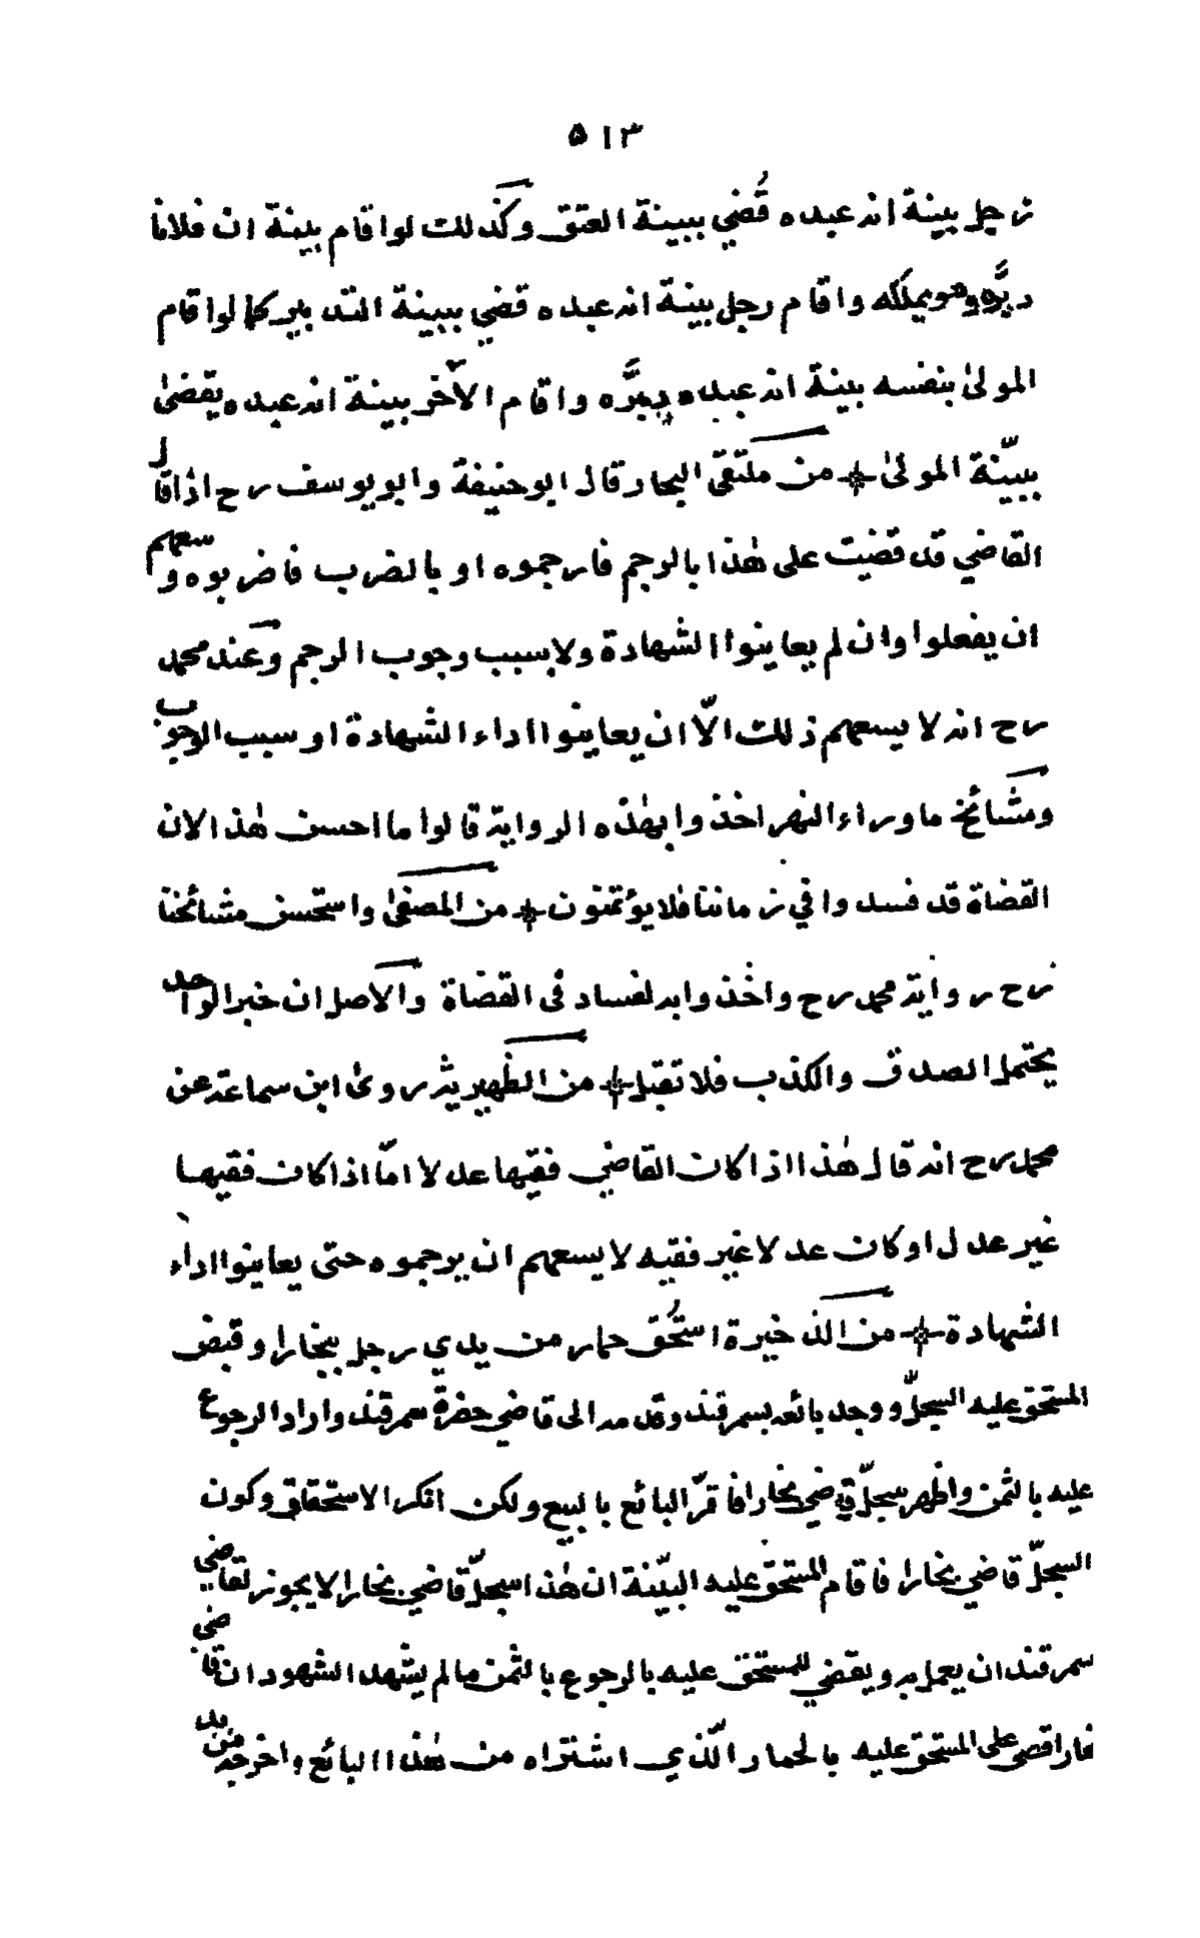 ٥١٣
رجل بينة انه عبده قُضي ببينة العتق وكذلك لو اقام بينة ان فلانا
دبَّره وهو يملكه واقام رجل بينة انه عبده قضي ببينة التدبير كما لو اقام
المولىٰ بنفسه بينة انه عبده دبَّره واقام الآخر بينة انه عبده يقضىٰ
ببيّنة المولىٰ من ملتقى البحار قال ابو حنيفة وابو يوسف رح اذا قال
القاضي قد قضيت على هٰذا بالرجم فارجموه او بالضرب فاضربوه وسعهم
ان يفعلوا وان لم يعاينوا الشهادة ولا سبب وجوب الرجم وعند محمد
رح انه لا يسعهم ذلك الّا ان يعاينوا اداء الشهادة او سبب الوجوب
ومشائخ ما وراء النهر اخذوا بهٰذه الرواية قالوا ما احسن هٰذا لان
القضاة قد فسدوا في زماننا فلا يؤتمنون من المصفىٰ واستحسن مشائخنا
رح رواية محمد رح واخذوا به لفساد في القضاة والاصل ان خبر الواحد
يحتمل الصدق والكذب فلا تقبل من الظهيرية روىٰ ابن سماعة عن
محمد رح انه قال هٰذا اذا كان القاضي فقيها عدلا امّا اذا كان فقيها
غير عدل او كان عدلا غير فقيه لا يسعهم ان يرجموه حتى يعاينوا اداء
الشهادة من الذخيرة استُحق حمار من يدي رجل ببخارا وقبض
المستحق عليه السجلّ ووجد بائعه بسمرقند وقدمه الى قاضي حضرة سمرقند واراد الرجوع
عليه بالثمن واظهر سجلّ قاضي بخارا فاقرّ البائع بالبيع ولكن انكر الاستحقاق وكون
السجلّ قاضي بخارا فاقام المستحق عليه البيّنة ان هٰذا سجلّ قاضي بخارا لا يجوز لقاضي
سمرقند ان يعمل به ويقضي للمستحق عليه بالرجوع بالثمن ما لم يشهد الشهود ان قاضي
بخارا قضى على المستحق عليه بالحمار الّذي اشتراه من هٰذا البائع واخرجه من يد